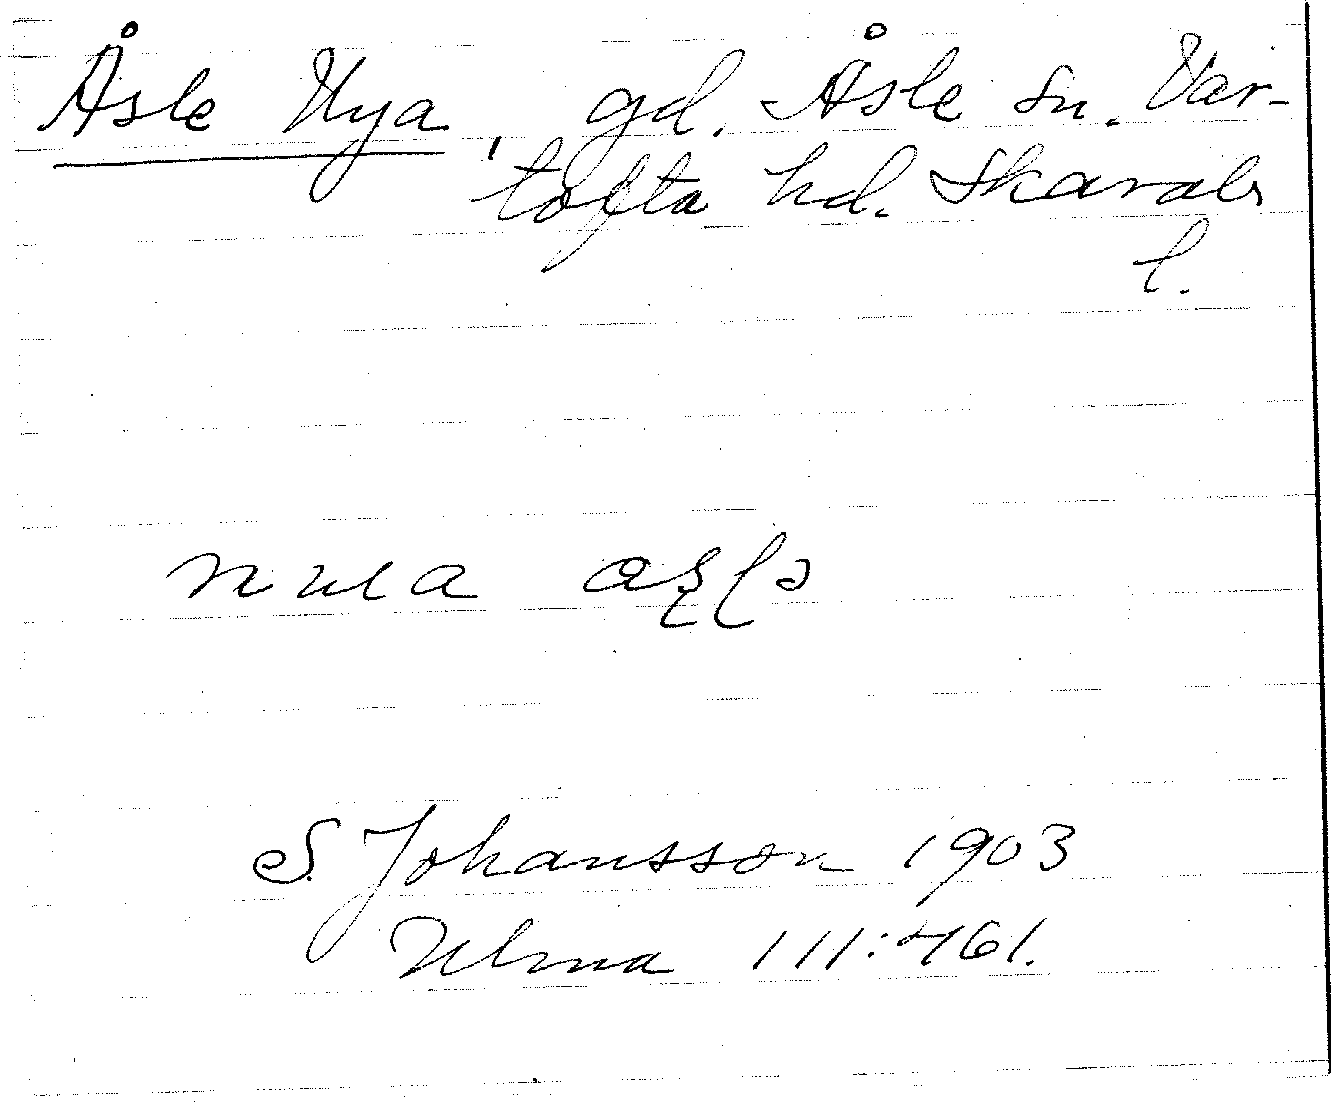 Åsle Nya, gd. Åsle sn. Var-
tofta hd. Skarabs
l.
S. Johansson 1903
Ulma 111:461.